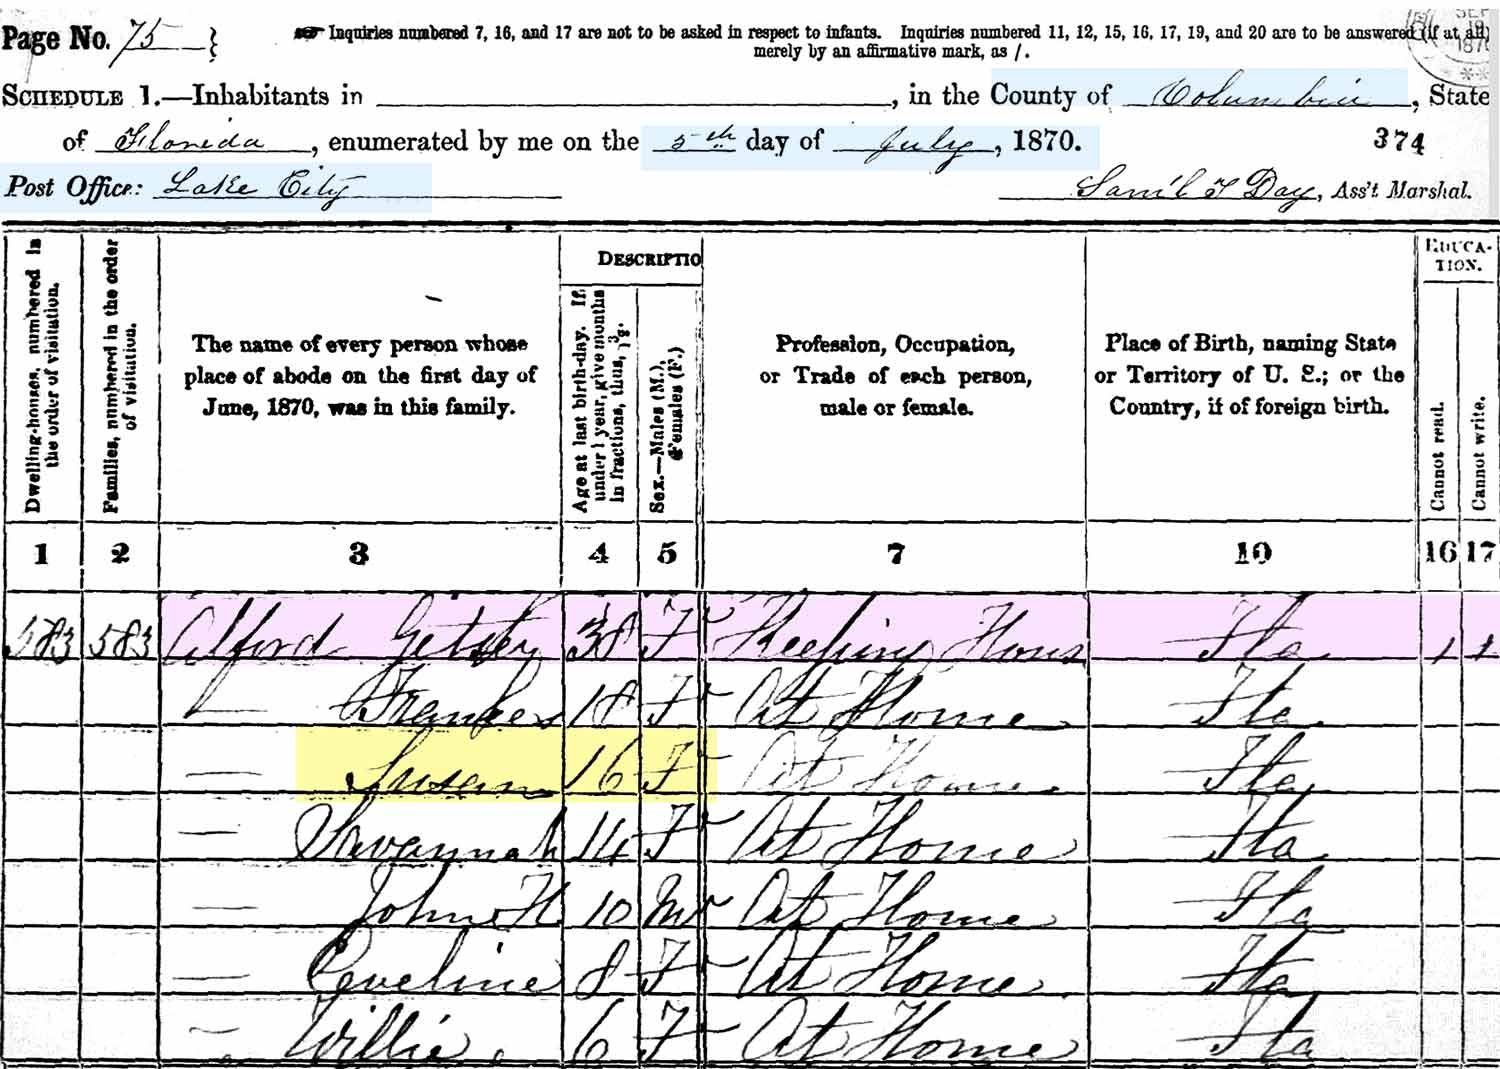 Page No. 75
☞ Inquiries numbered 7, 16, and 17 are not to be asked in respect to infants. Inquiries numbered 11, 12, 15, 16, 17, 19, and 20 are to be answered (if at all)
merely by an affirmative mark, as /.
SEP
1870
SCHEDULE 1.—Inhabitants in , in the County of Columbia, State
of Florida, enumerated by me on the 5th day of July, 1870.
374
Post Office: Lake City
Sam'l T Day, Ass't Marshal.
Dwelling-houses, numbered in the order of visitation.
Families, numbered in the order of visitation.
The name of every person whose place of abode on the first day of June, 1870, was in this family.
DESCRIPTIO
Age at last birth-day. If under 1 year, give months in fractions, thus, 3/12.
Sex.—Males (M.), Females (F.)
Profession, Occupation, or Trade of each person, male or female.
Place of Birth, naming State or Territory of U. S.; or the Country, if of foreign birth.
EDUCA-
TION.
Cannot read.
Cannot write.
1 2 3 4 5 7 10 16 17
583 583 Alford Getsey 38 F Keeping Hous Fla / /
— Frances 18 F At Home Fla
— Susan 16 F At Home Fla
— Savannah 14 F At Home Fla
— John H 10 M At Home Fla
— Eveline 8 F At Home Fla
— Willie 6 F At Home Fla